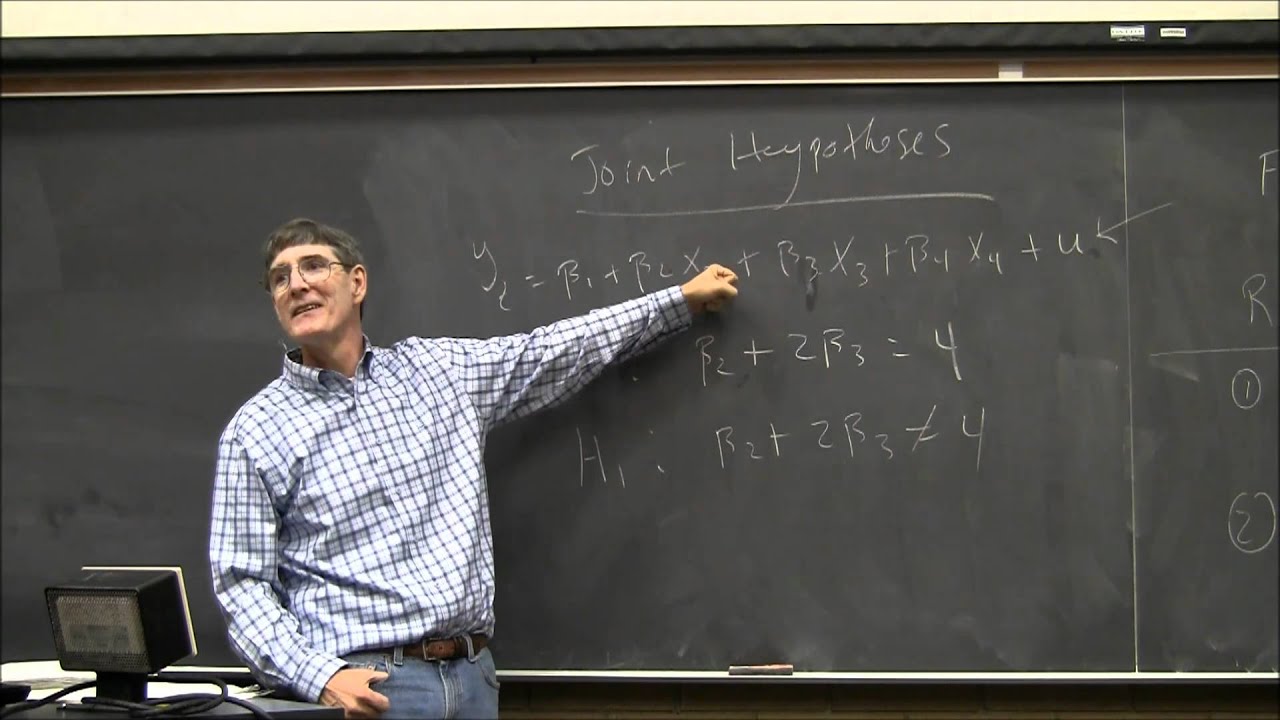 Joint Heypotheses
y_t = β₁ + β₂ X + β₃ X₃ + β₄ X₄ + u
: β₂ + 2β₃ = 4
H₁ : β₂ + 2β₃ ≠ 4
F
R
①
②